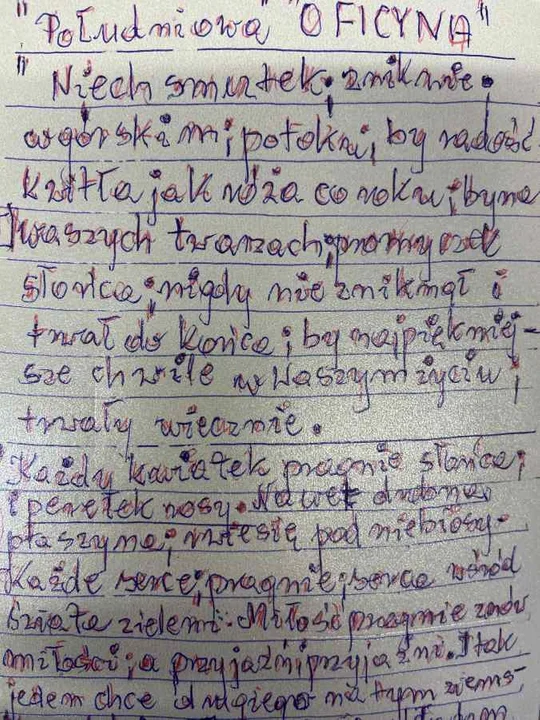 "Południowa" "OFICYNA"
"Niech smutek; zniknie.
w górskim; potoku; by radość
kwitła jak róża co roku; by na
waszych twarzach; promyczek
słońca; nigdy nie zniknął i
trwał do końca; by najpiękniej-
sze chwile w Waszym życiu;
trwały wiecznie.
Każdy kwiatek pragnie słońca;
i perełek rosy. Nawet drobna
ptaszyna; wzniesie pod niebiosy.
Każde serce; pragnie; serca wśród
świata zieleni. Miłość pragnie znów
miłości; a przyjaźń; przyjaźni. I tak
jeden chce drugiego na tym